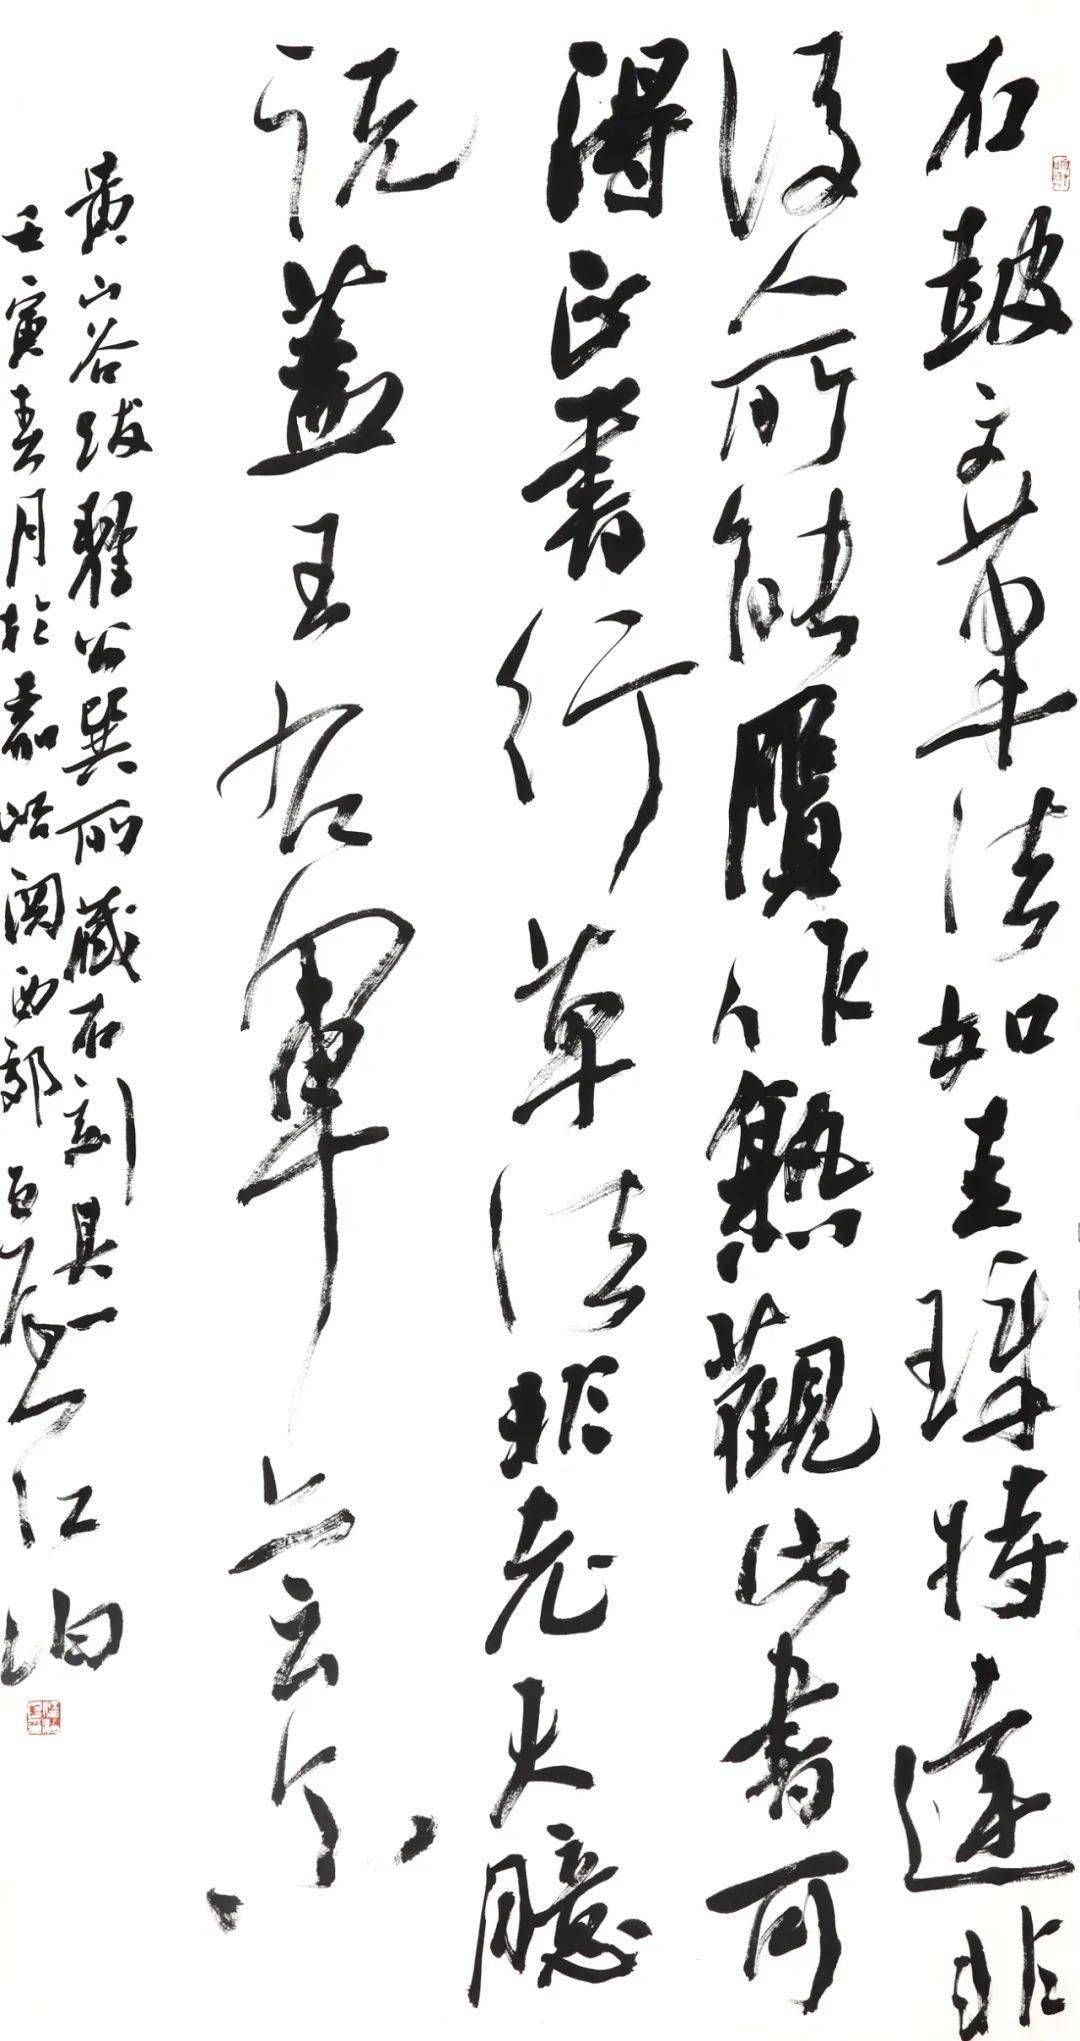 石鼓文筆法如圭璋特達非
後人所能贗作熟觀此書可
得正書行草法非老夫臆
説蓋王右軍亦云尔
黄山谷跋翟公巽所藏石刻其一
壬寅春月於嘉峪関西郊江泊